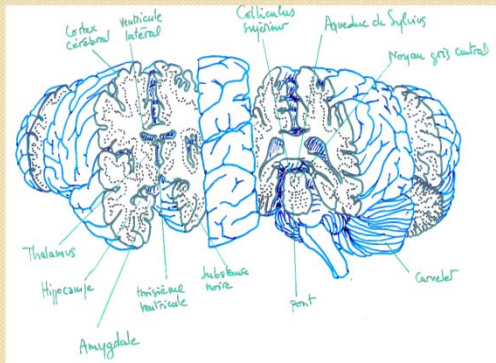 Cortex
cérébral
ventricule
latéral
Colliculus
supérieur
Aqueduc de Sylvius
Noyau gris central
Thalamus
Hippocampe
Amygdale
troisième
ventricule
substance
noire
Pont
Cervelet